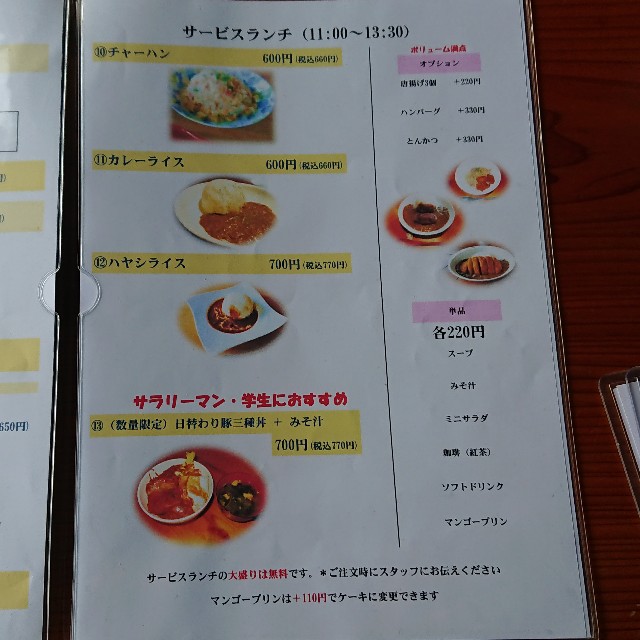 サービスランチ（11:00～13:30）
⑩チャーハン 600円（税込660円）
⑪カレーライス 600円（税込660円）
⑫ハヤシライス 700円（税込770円）
サラリーマン・学生におすすめ
⑬（数量限定）日替わり豚三種丼 + みそ汁
700円（税込770円）
ボリューム満点
オプション
唐揚げ3個 +220円
ハンバーグ +330円
とんかつ +330円
単品
各220円
スープ
みそ汁
ミニサラダ
珈琲（紅茶）
ソフトドリンク
マンゴープリン
サービスランチの大盛りは無料です。＊ご注文時にスタッフにお伝えください
マンゴープリンは+110円でケーキに変更できます
650円）